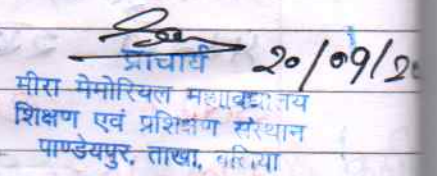 प्राचार्य 20/09/2
मीरा मेमोरियल महाविद्यालय
शिक्षण एवं प्रशिक्षण संस्थान
पाण्डेयपुर, ताखा, बलिया